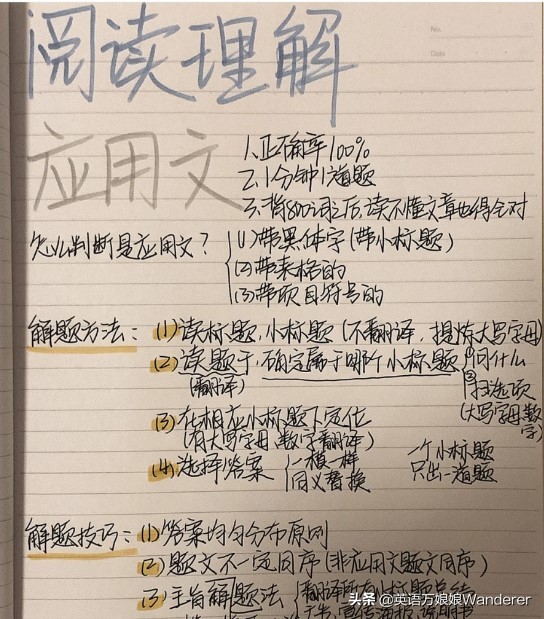 阅读理解
No.
Date
应用文
1.正确率100%
2.1分钟1道题
3.背800词后,读不懂文章也得会对
怎么判断是应用文?
(1)带黑体字(带小标题)
(2)带表格的
(3)带项目符号的
解题方法:(1)读标题,小标题(不翻译,提炼大写字母)
(2)读题干,确定属于哪个小标题
(翻译)
①问什么
②扫选项
(大写字母,数字)
(3)在相应小标题下定位
(有大写字母,数字翻译)
(4)选择答案
一模一样
同义替换
一个小标题
只出一道题
解题技巧:(1)答案均匀分布原则
(2)题文不一定同序(非应用文题文同序)
(3)主旨解题法
翻译所有小标题总结
头条 @英语万娘娘Wanderer